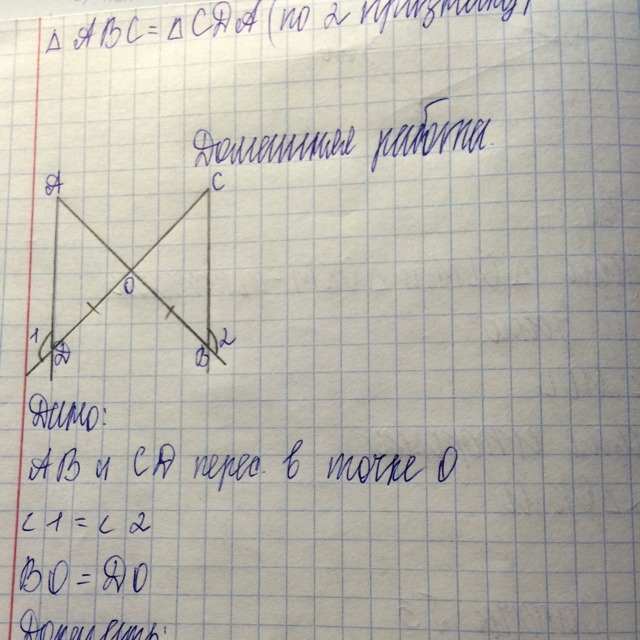 △ ABC = △ CDA (по 2 признаку)
Домашняя работа.
A
C
O
1
D
B
2
Дано:
AB и CD перес. в точке O
∠1 = ∠2
BO = DO
Доказать: